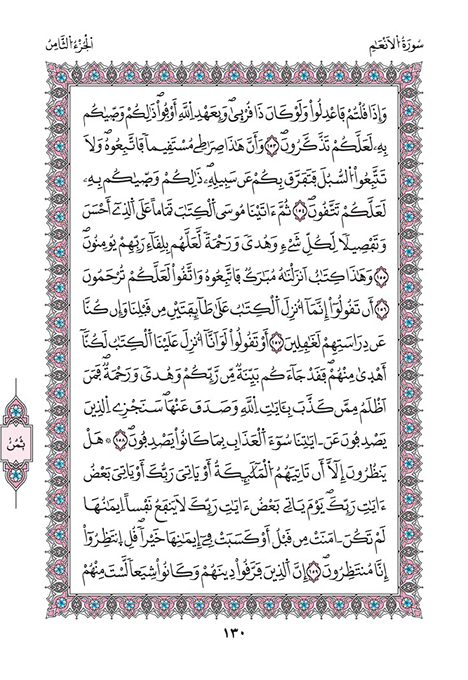 سُورَةُ الَانْعَامِ
الْجُزْءُ الثَّامِنُ
وَإِذَا قُلْتُمْ فَاعْدِلُواْ وَلَوْ كَانَ ذَا قُرْبَىٰ وَبِعَهْدِ اِ۬للَّهِ أَوْفُواْ ذَٰلِكُمْ وَصّ۪يٰكُم
بِهِۦ لَعَلَّكُمْ تَذَّكَّرُونَۖ ١٥٣ وَأَنَّ هَٰذَا صِرَٰطِے مُسْتَقِيماٗ فَاتَّبِعُوهُۖ وَلَا
تَتَّبِعُواْ اُ۬لسُّبُلَ فَتَفَرَّقَ بِكُمْ عَن سَبِيلِهِۦۖ ذَٰلِكُمْ وَصّ۪يٰكُم بِهِۦ
لَعَلَّكُمْ تَتَّقُونَۖ ١٥٤ ثُمَّ ءَاتَيْنَا مُوسَى اَ۬لْكِتَٰبَ تَمَاماً عَلَى اَ۬لذِےٓ أَحْسَنَ
وَتَفْصِيلاٗ لِّكُلِّ شَےْءٖ وَهُدىٗ وَرَحْمَةٗ لَّعَلَّهُم بِلِقَآءِ رَبِّهِمْ يُومِنُونَۖ
١٥٥ وَهَٰذَا كِتَٰبٌ اَنزَلْنَٰهُ مُبَٰرَكٞ فَاتَّبِعُوهُ وَاتَّقُواْ لَعَلَّكُمْ تُرْحَمُونَ
١٥٦ أَن تَقُولُوٓاْ إِنَّمَآ أُنزِلَ اَ۬لْكِتَٰبُ عَلَىٰ طَآئِفَتَيْنِ مِن قَبْلِنَا وَإِن كُنَّا
عَن دِرَاسَتِهِمْ لَغَٰفِلِينَ ١٥٧ أَوْ تَقُولُواْ لَوَ اَنَّآ أُنزِلَ عَلَيْنَا اَ۬لْكِتَٰبُ لَكُنَّآ
أَهْد۪ىٰ مِنْهُمْۖ فَقَدْ جَآءَكُم بَيِّنَةٞ مِّن رَّبِّكُمْ وَهُدىٗ وَرَحْمَةٞۖ فَمَنَ
اَظْلَمُ مِمَّن كَذَّبَ بِـَٔايَٰتِ اِ۬للَّهِ وَصَدَفَ عَنْهَاۖ سَنَجْزِے اِ۬لذِينَ
يَصْدِفُونَ عَنَ اٰيَٰتِنَا سُوٓءَ اَ۬لْعَذَابِ بِمَا كَانُواْ يَصْدِفُونَۖ ١٥٨ ۞ هَلْ
يَنظُرُونَ إِلَّآ أَن تَاتِيَهُمُ اُ۬لْمَلَٰٓئِكَةُ أَوْ يَاتِيَ رَبُّكَ أَوْ يَاتِيَ بَعْضُ
ءَايَٰتِ رَبِّكَۖ يَوْمَ يَاتِے بَعْضُ ءَايَٰتِ رَبِّكَ لَا يَنفَعُ نَفْساً اِيمَٰنُهَا
لَمْ تَكُنَ اٰمَنَتْ مِن قَبْلُ أَوْ كَسَبَتْ فِےٓ إِيمَٰنِهَا خَيْراٗۖ قُلِ اِ۪نتَظِرُوٓاْ
إِنَّا مُنتَظِرُونَۖ ١٥٩ إِنَّ اَ۬لذِينَ فَرَّقُواْ دِينَهُمْ وَكَانُواْ شِيَعاٗ لَّسْتَ مِنْهُمْ
ثُمُن
١٣٠